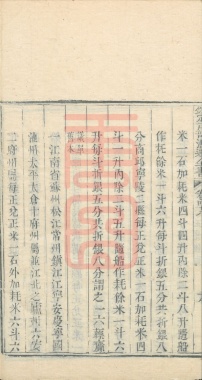 米一石加耗米四斗四升內除二斗八升隨船
作耗餘米一斗六升每升折銀五分共折銀八
分高郵寧陵二縣每正米一石加耗米四
斗一升內除二斗五升隨船作耗餘米一斗六
升每斗折銀五分共折銀八分謂之一六輕齎
一江南省蘇州松江常州鎮江江寧安慶寧國
池州太平太倉十府州屬並江北之廬州六安
二府州屬每正兌正米一石外加耗米六斗六